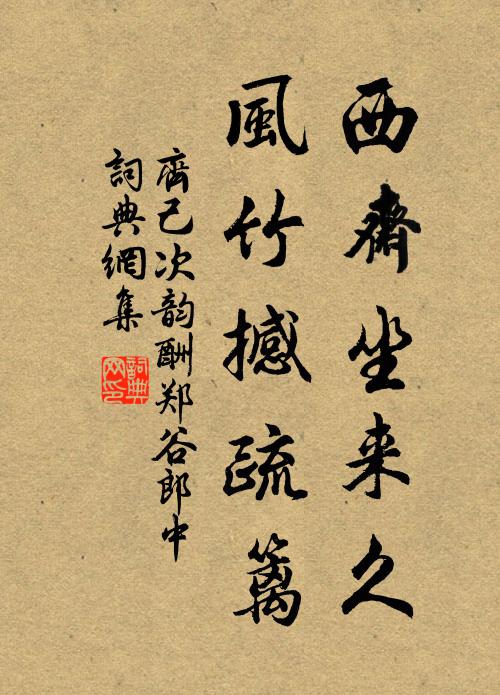 西齋坐来久
風竹撼疏篱
齊己次韵酬郑谷郎中
詞典網集
詞典
网印